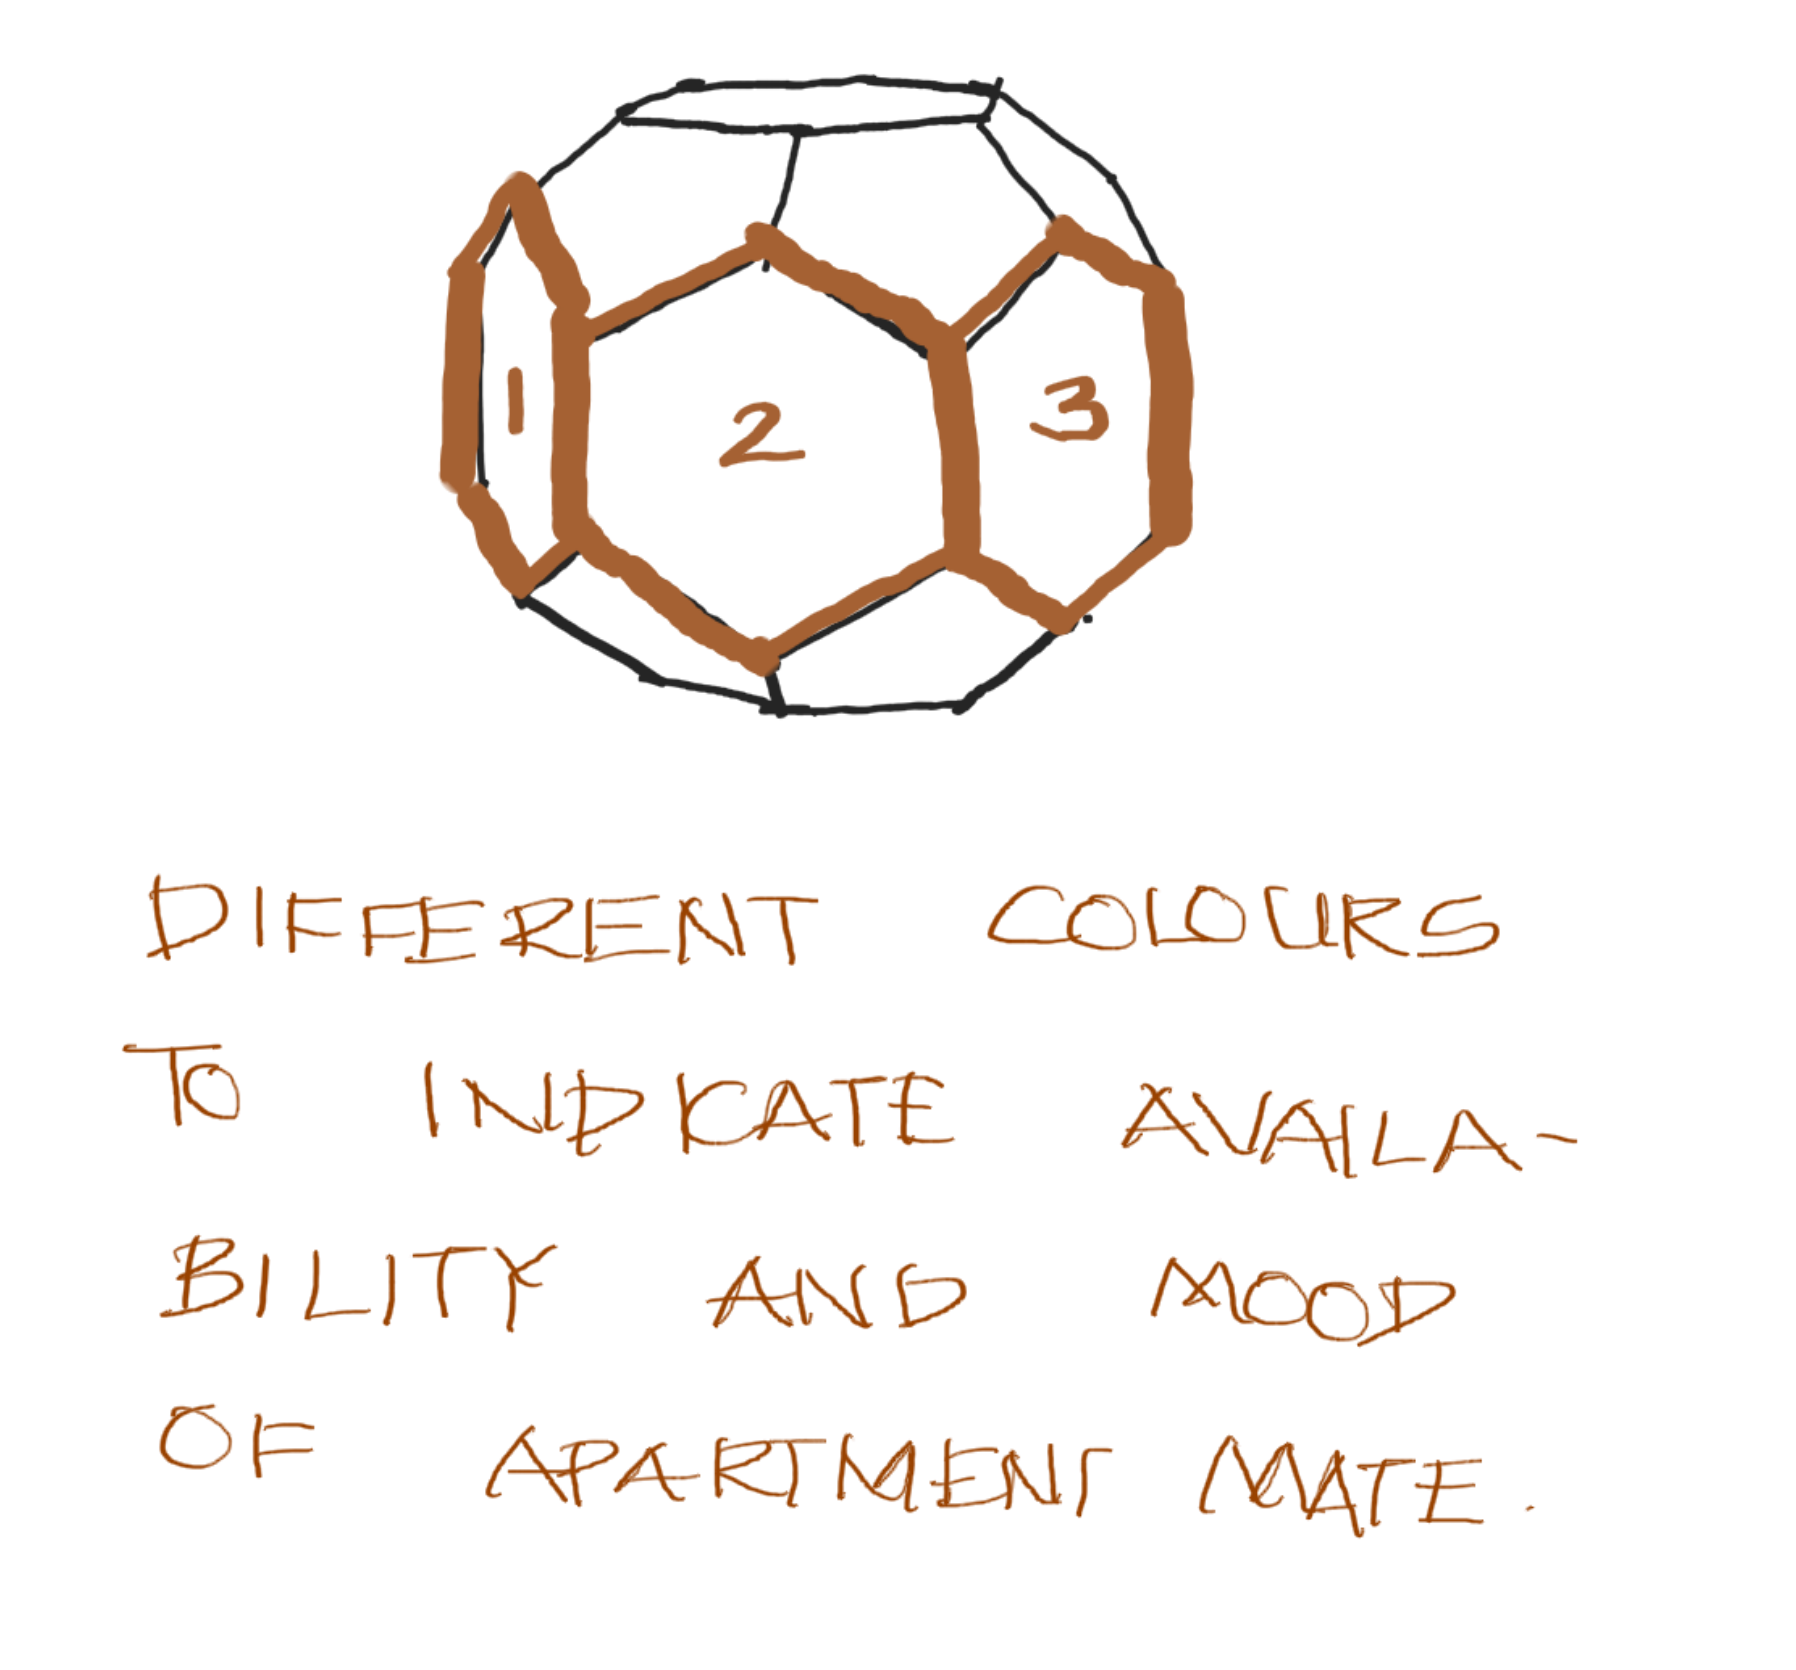 1
2
3
DIFFERENT COLOURS
TO INDICATE AVAILA-
BILITY AND MOOD
OF APARTMENT MATE.